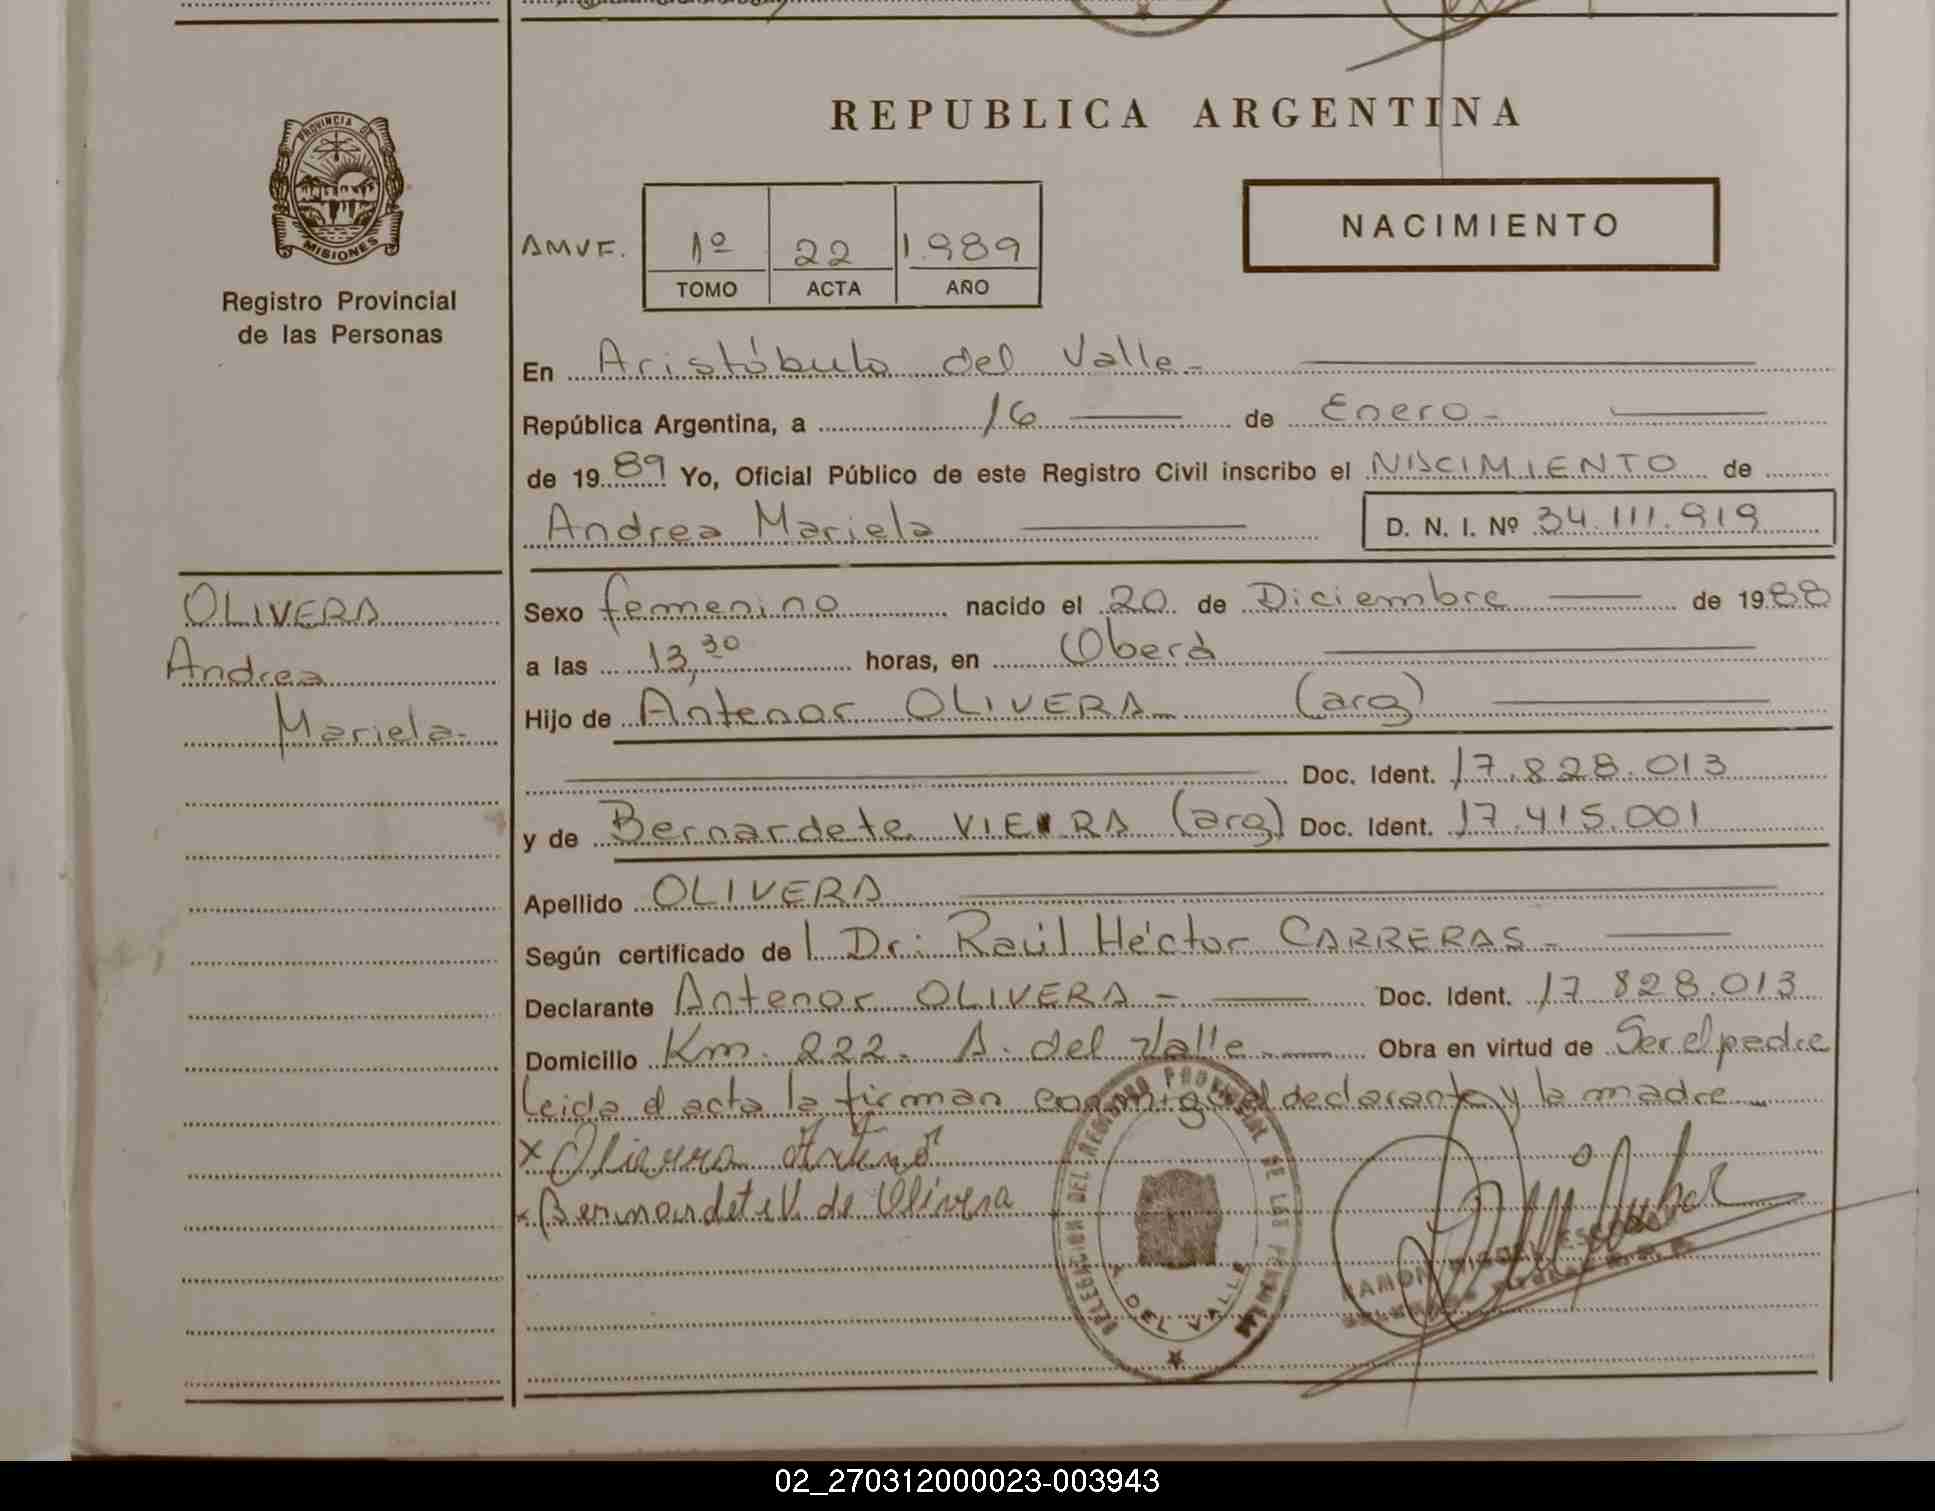 REPUBLICA ARGENTINA
PROVINCIA DE
MISIONES
Registro Provincial
de las Personas
NACIMIENTO
AMVF. 1º 22 1.989
TOMO ACTA AÑO
En Aristóbulo del Valle-
República Argentina, a 16 de Enero-
de 1989 Yo, Oficial Público de este Registro Civil inscribo el NACIMIENTO de
Andrea Mariela D. N. I. Nº 34.111.919
OLIVERA
Andrea
Mariela-
Sexo femenino nacido el 20 de Diciembre de 1988
a las 13,30 horas, en Oberá
Hijo de Antenor OLIVERA- (arg)
Doc. Ident. 17.828.013
y de Bernardete VIEIRA (arg) Doc. Ident. 17.415.001
Apellido OLIVERA
Según certificado del Dr: Raúl Héctor CARRERAS-
Declarante Antenor OLIVERA- Doc. Ident. 17 828.013
Domicilio Km. 222. A. del Valle- Obra en virtud de Ser el padre
Leida el acta la firman conmigo el declarante y la madre-
x Olivera
x Bernardete V. de Olivera
DELEGACION DEL REGISTRO PROVINCIAL DE LAS PERSONAS
A. DEL VALLE
RAMON MIGUEL
02_270312000023-003943